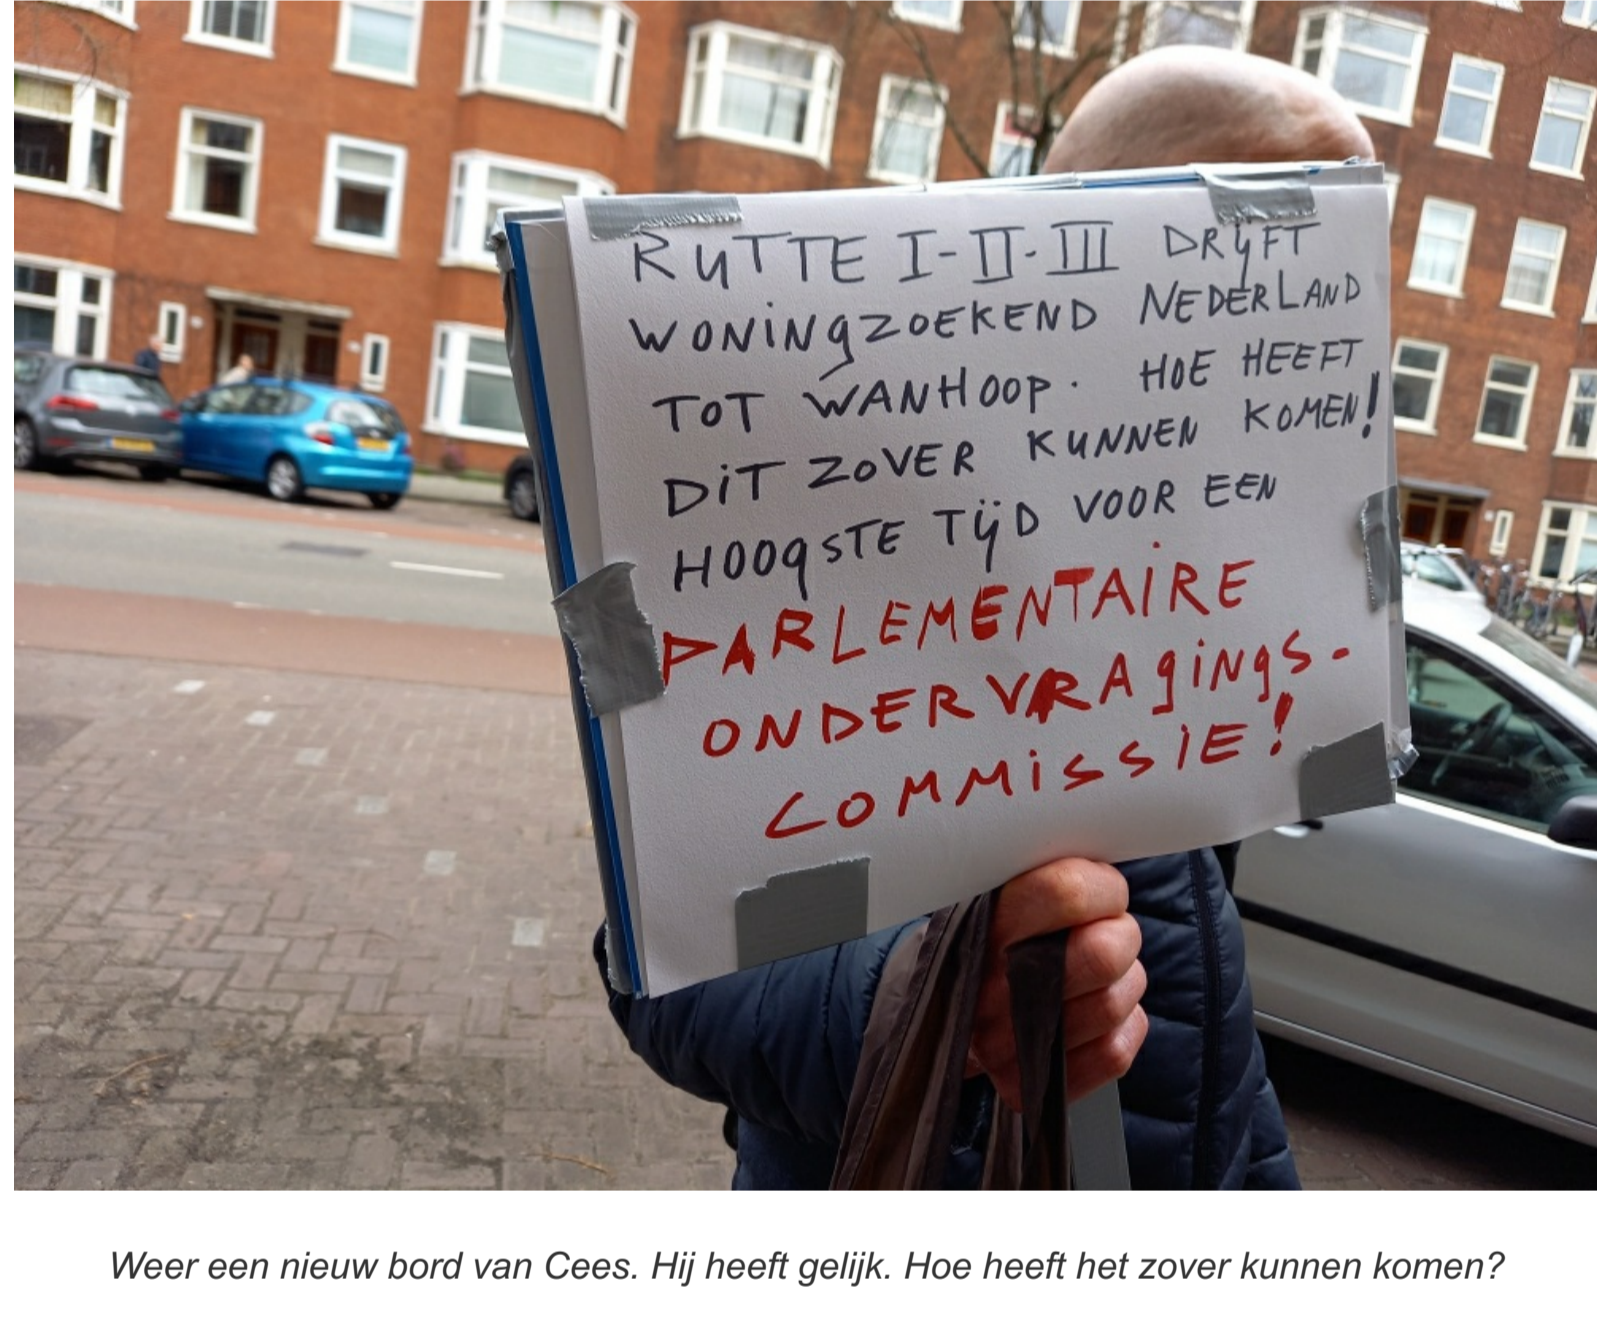 RUTTE I-II-III DRYFT
WONINGZOEKEND NEDERLAND
TOT WANHOOP. HOE HEEFT
DIT ZOVER KUNNEN KOMEN!
HOOGSTE TIJD VOOR EEN
PARLEMENTAIRE
ONDERVRAGINGS-
COMMISSIE!
Weer een nieuw bord van Cees. Hij heeft gelijk. Hoe heeft het zover kunnen komen?